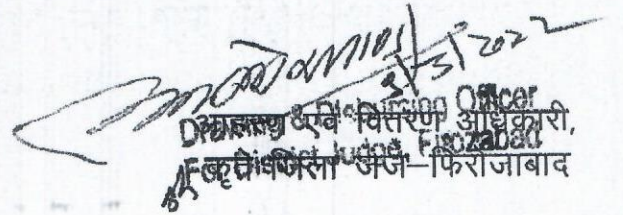 8/3/2022
Drawing & Disbursing Officer
आहरण एवं वितरण अधिकारी,
For District Judge, Firozabad
कृते जिला जज–फिरोजाबाद